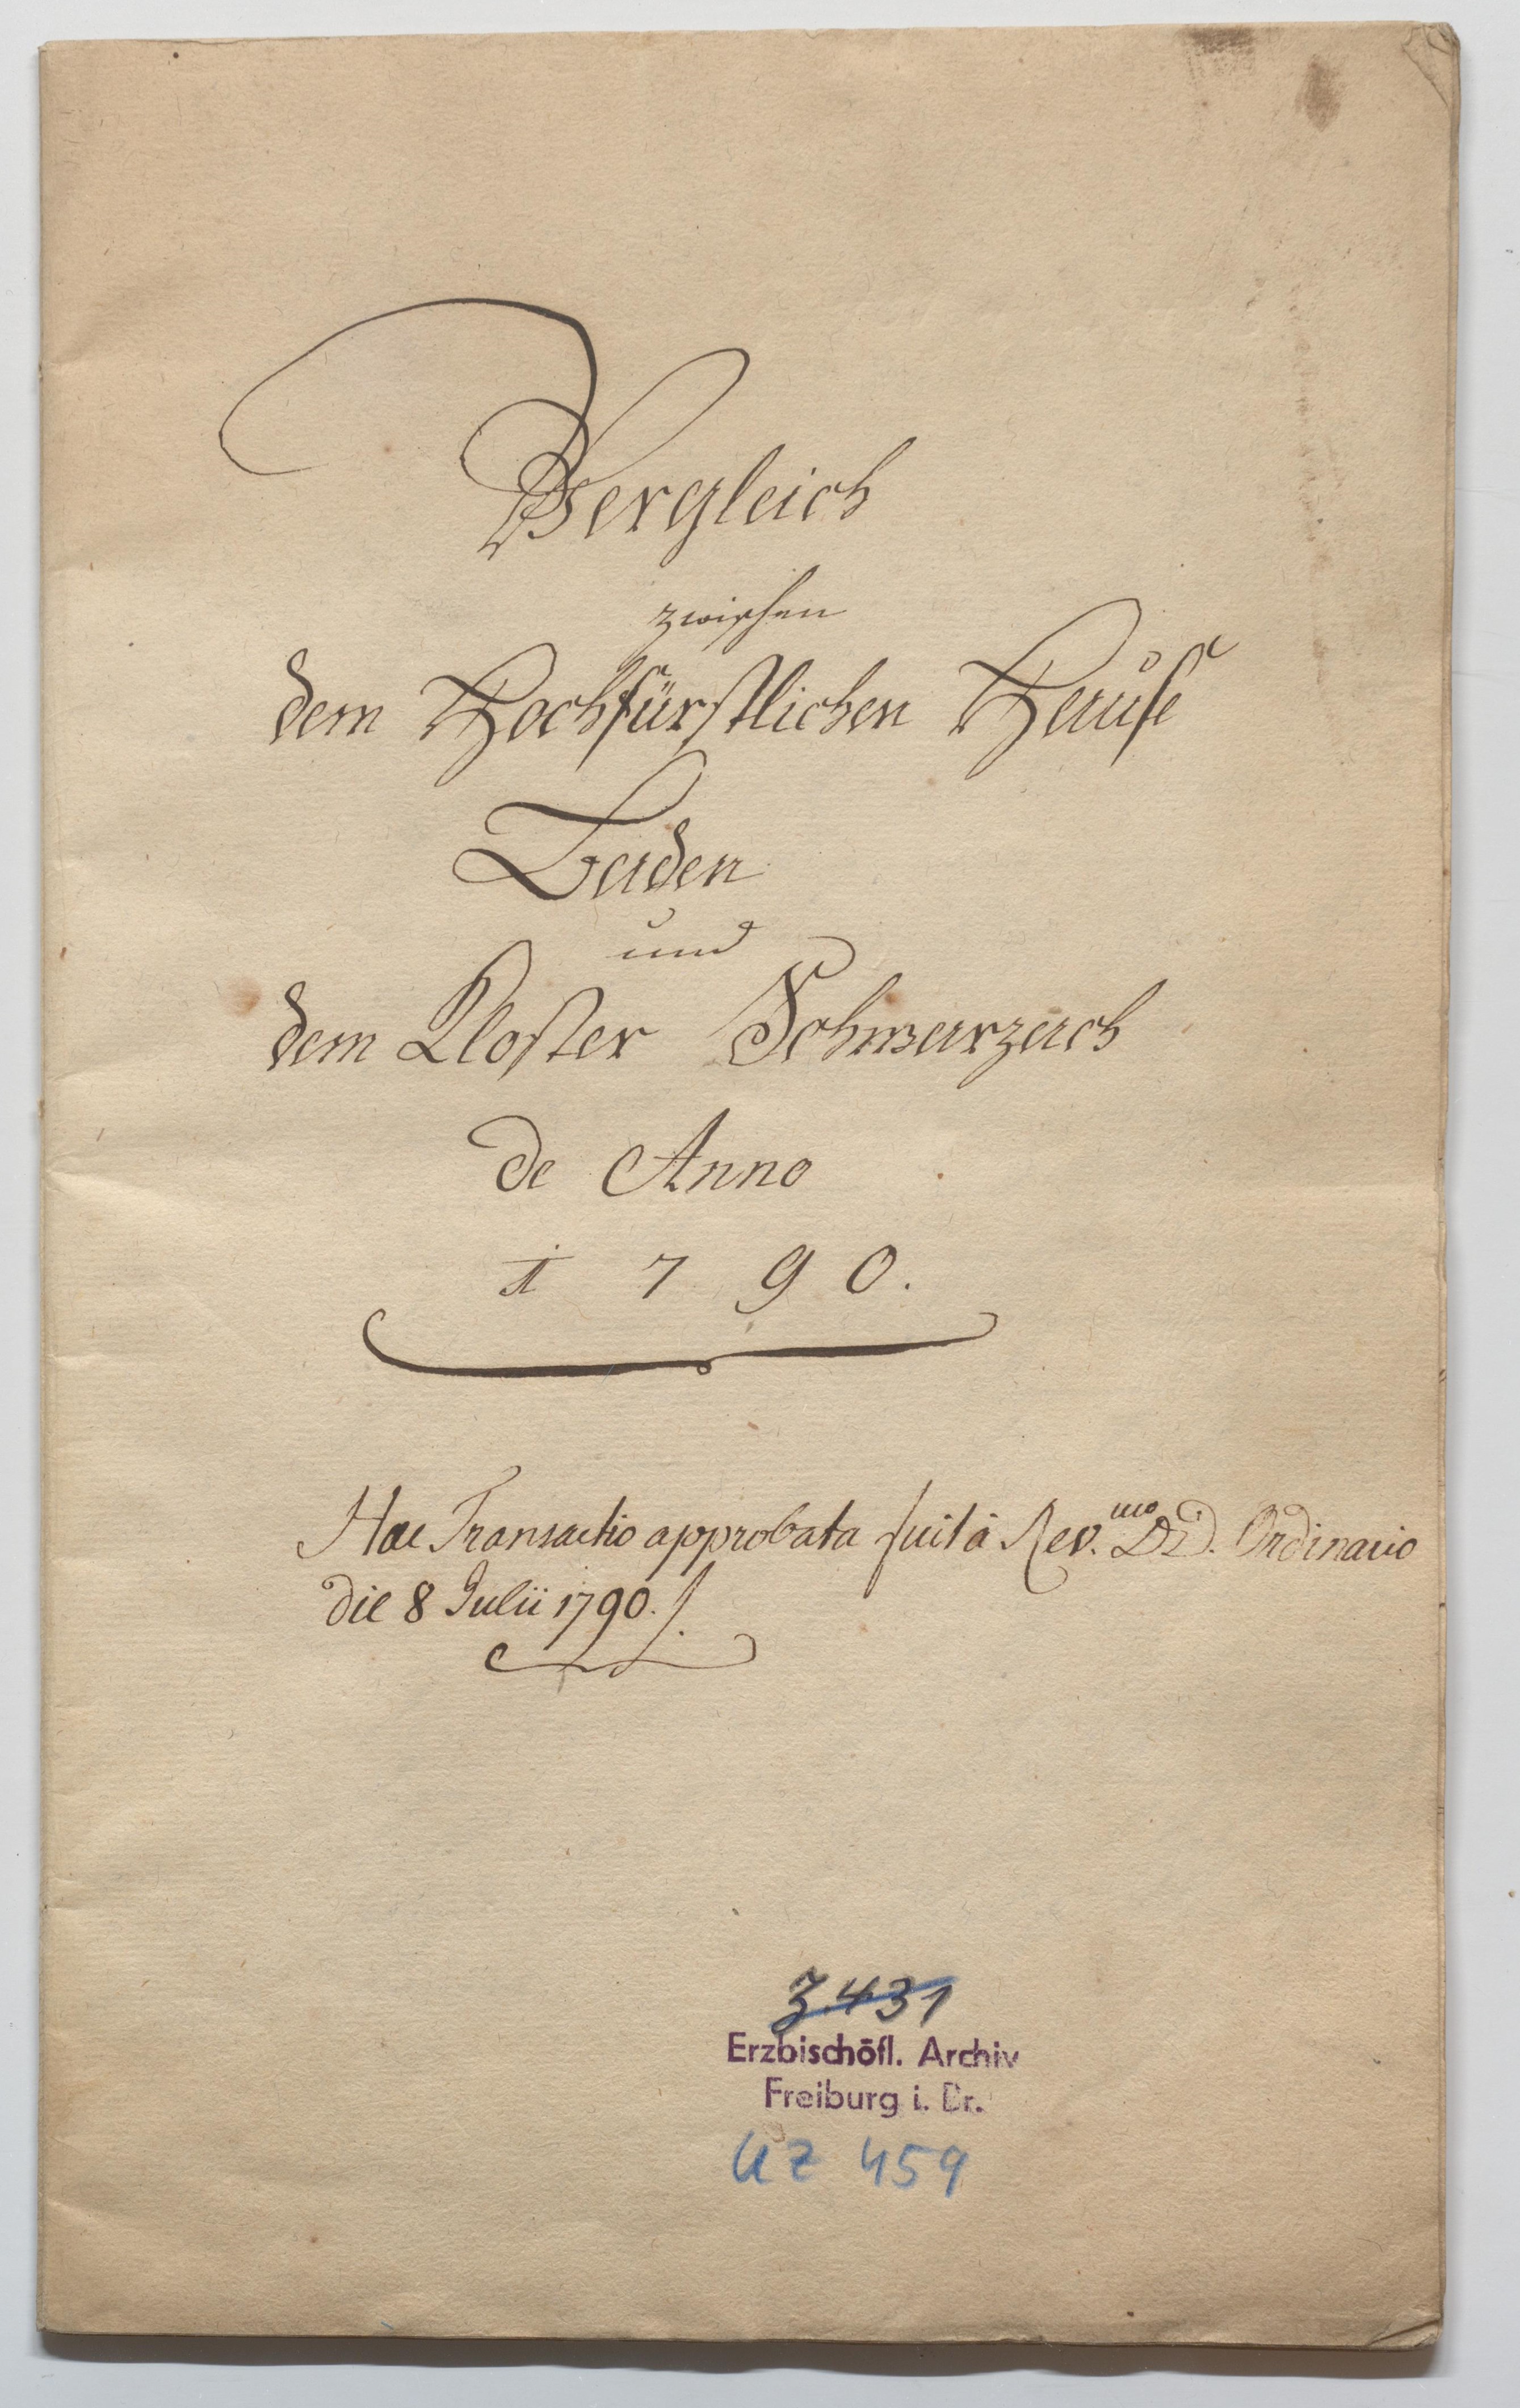 Vergleich
zwischen
dem Hochfürstlichen Hause
Baden
und
dem Kloster Schwarzach
de Anno
1790.
Hae Transactio approbata fuit à Rev.mo DD. Ordinario
die 8 Julii 1790.
Z 431
Erzbischöfl. Archiv
Freiburg i. Br.
UZ 459